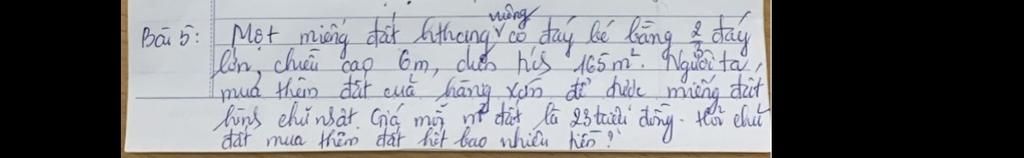 Bài 5: Một miếng đất hthang vuông có đáy bé bằng 2/3 đáy
lớn, chiều cao 6m, diện tích 165m². Người ta
mua thêm đất của hàng xóm để được miếng đất
hình chữ nhật. Giá mỗi m² đất là 23 triệu đồng. Hỏi chủ
đất mua thêm đất hết bao nhiêu tiền?